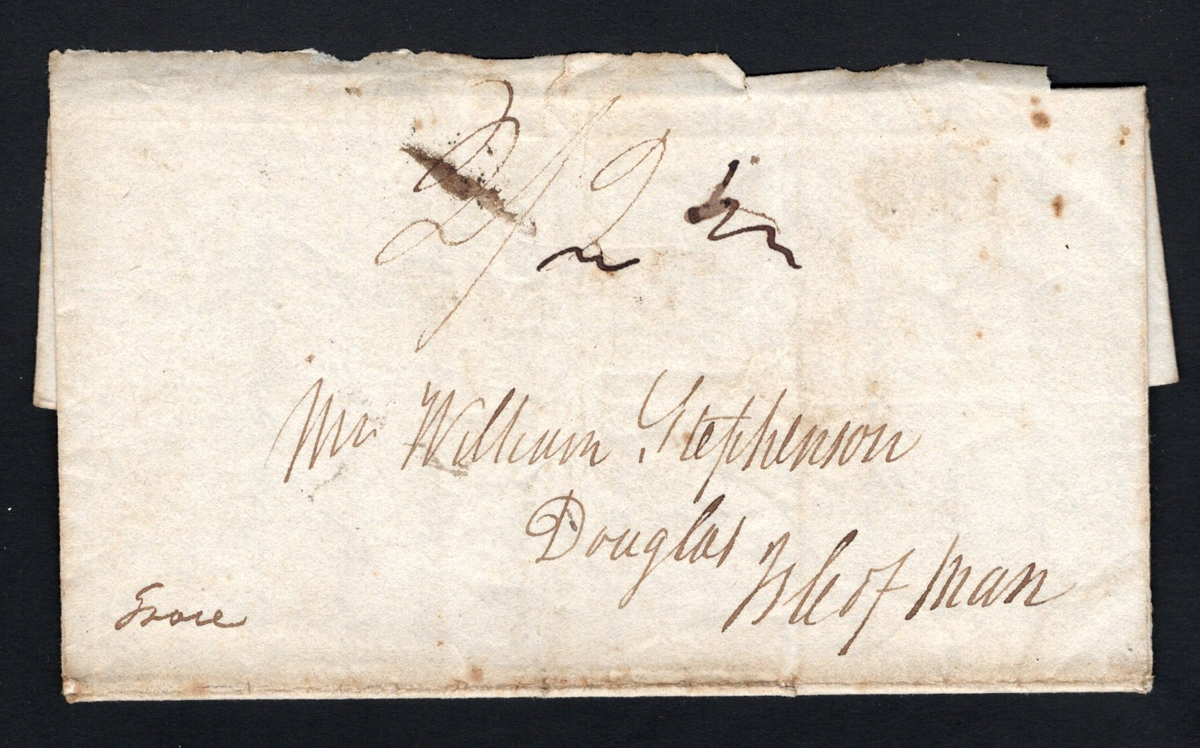 2/2
Mr William Stephenson
Douglas
Isle of Man